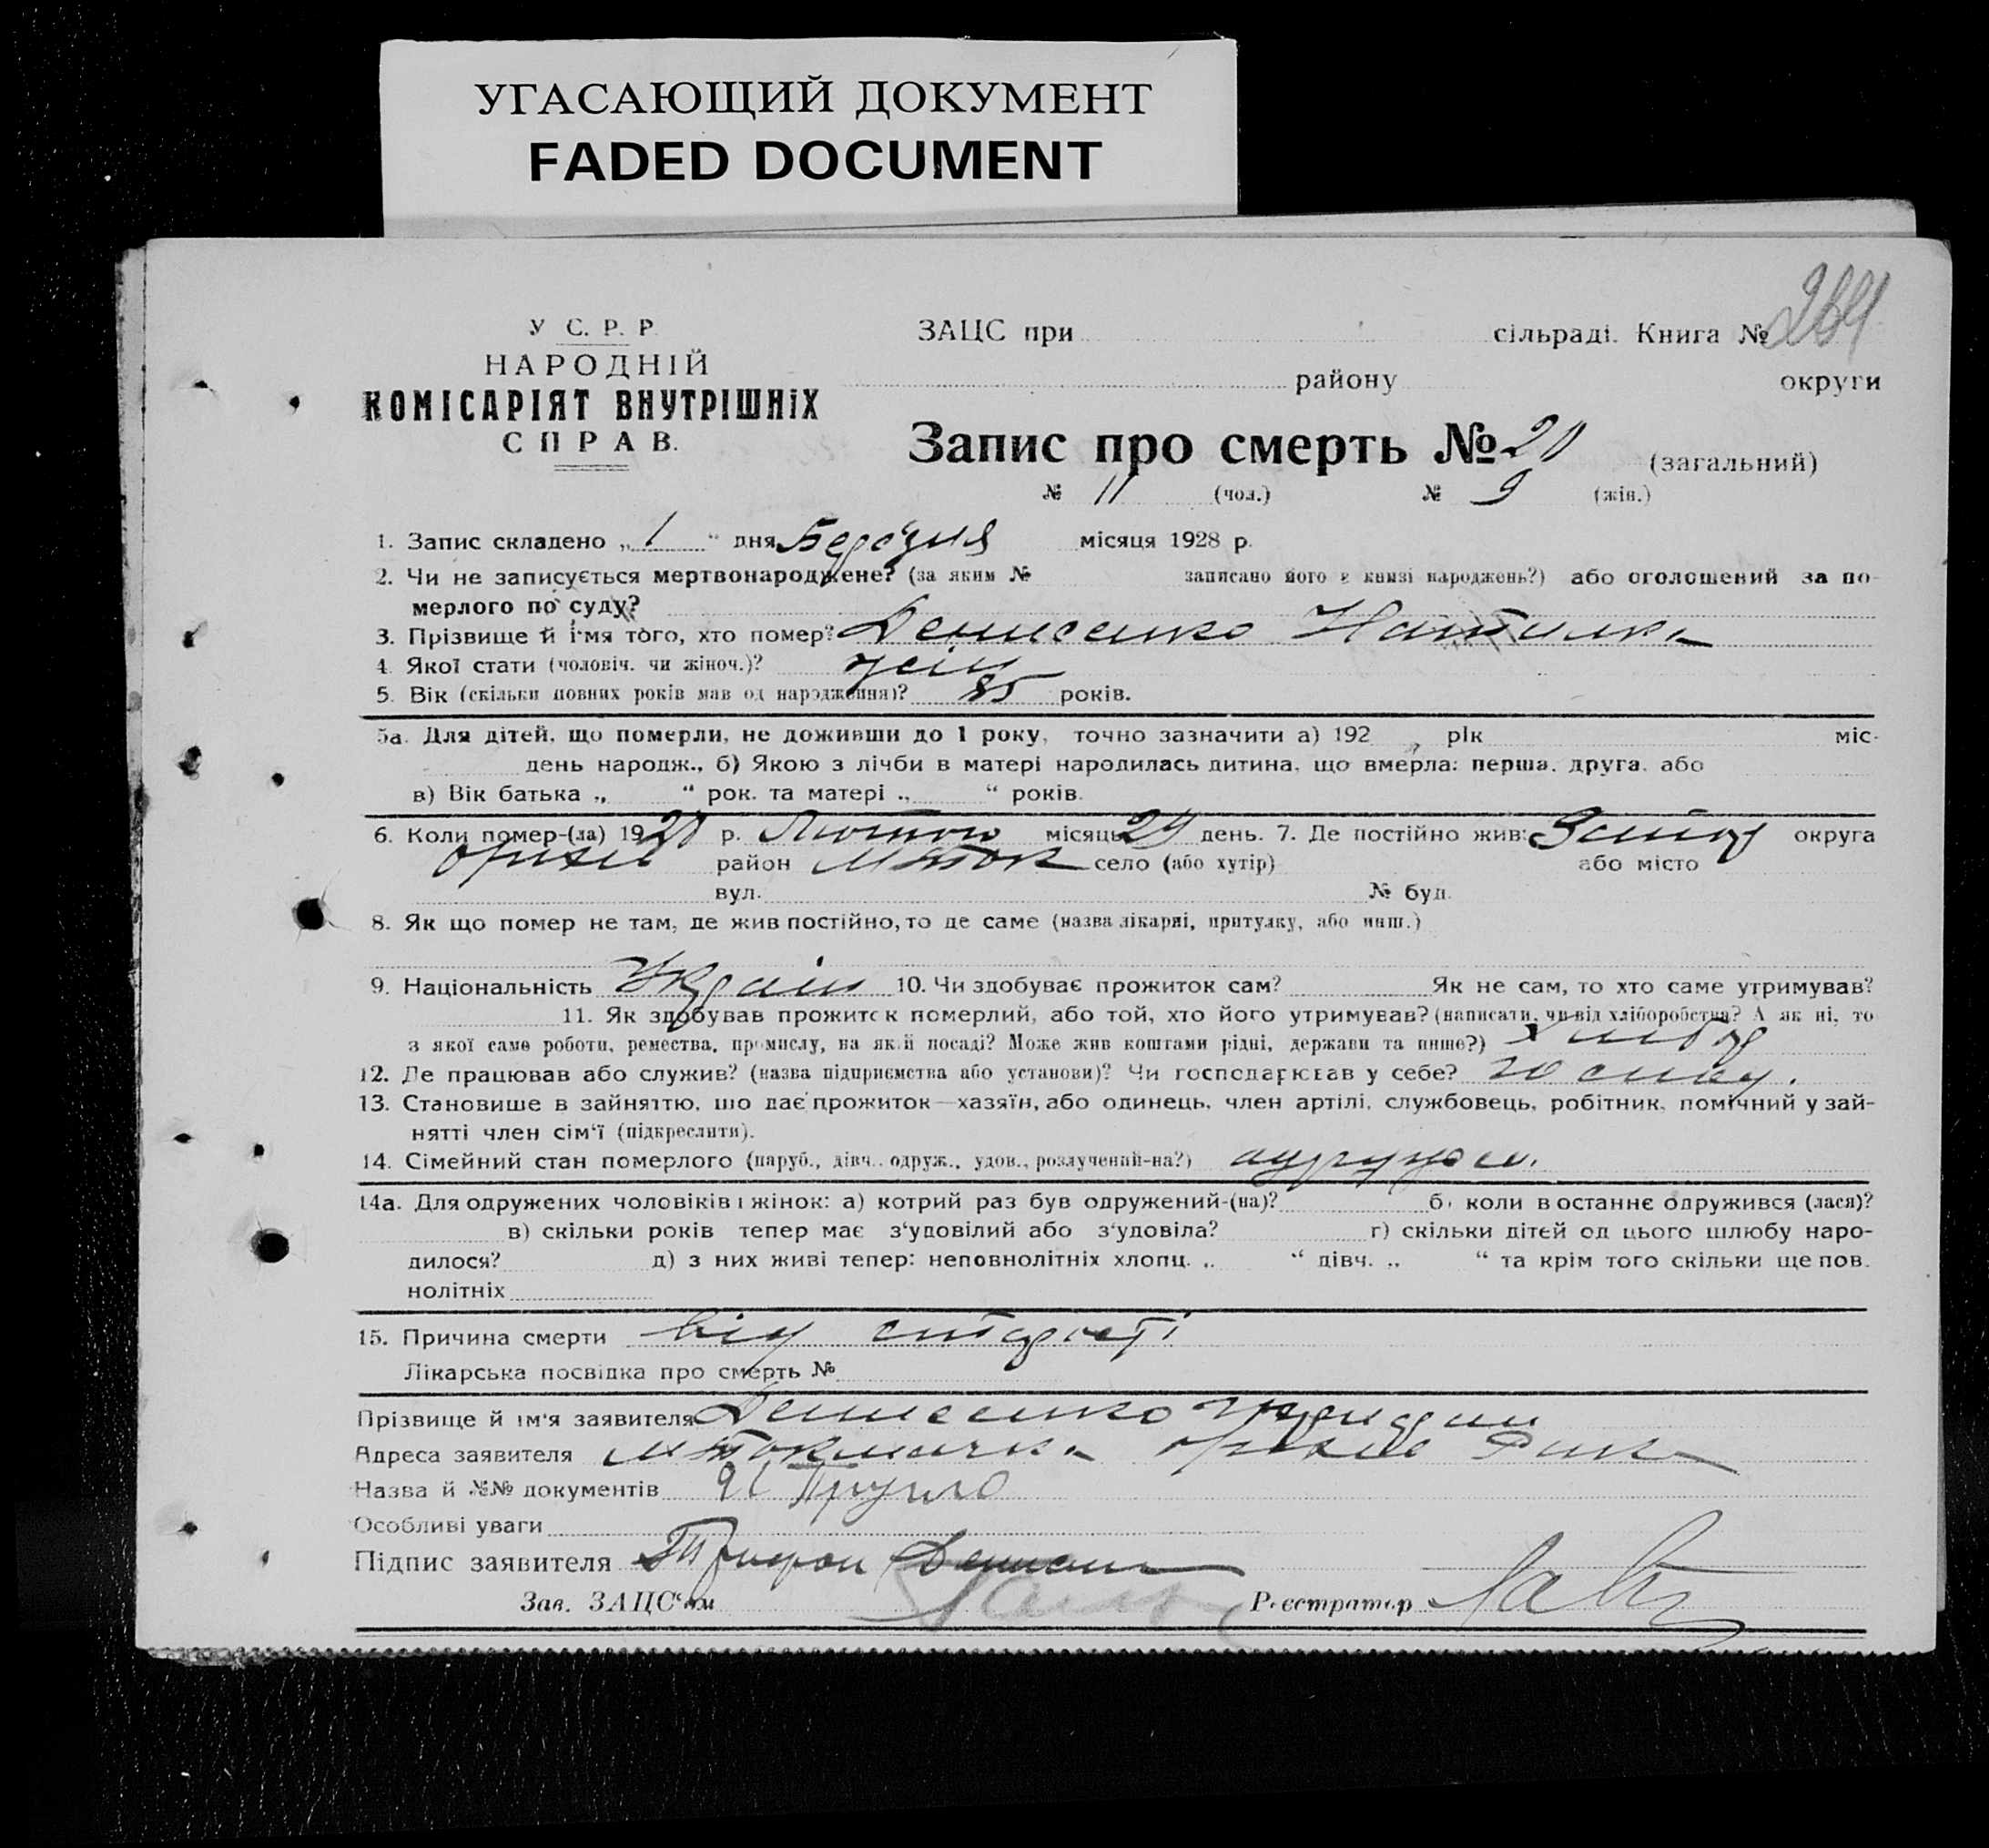 УГАСАЮЩИЙ ДОКУМЕНТ
FADED DOCUMENT
У С. Р. Р.
НАРОДНІЙ
КОМІСАРІЯТ ВНУТРІШНІХ
СПРАВ.
ЗАЦС при сільраді. Книга №
району округи
Запис про смерть № 20 (загальний)
№ 11 (чол.) № 9 (жін.)
1. Запис складено „1“ дня Березня місяця 1928 р.
2. Чи не записується мертвонароджене? (за яким № записано його в книзі народжень?) або оголошений за по-
мерлого по суду?
3. Прізвище й ім'я того, хто помер? Денисенко Наталка
4. Якої стати (чоловіч. чи жіноч.)? жін
5. Вік (скільки повних років мав од народження)? 85 років.
5а. Для дітей, що померли, не доживши до 1 року, точно зазначити а) 192 , рік міс-
день народж., б) Якою з лічби в матері народилась дитина, що вмерла: перша, друга, або
в) Вік батька „ “ рок. та матері „ “ років.
6. Коли помер-(ла) 1928 р. Лютого місяць 29 день. 7. Де постійно жив: Запор округа
оріхів район МТок село (або хутір) або місто
вул. № буд.
8. Як що помер не там, де жив постійно, то де саме (назва лікарні, притулку, або инш.)
9. Національність Україн 10. Чи здобуває прожиток сам? Як не сам, то хто саме утримував?
11. Як здобував прожиток померлий, або той, хто його утримував? (написати, чи від хліборобства? А як ні, то
з якої саме роботи, ремества, промислу, на якій посаді? Може жив коштами рідні, держави та инше?) хлібор
12. Де працював або служив? (назва підприємства або установи)? Чи господарював у себе?
13. Становише в зайняттю, що дає прожиток—хазяїн, або одинець, член артілі, службовець, робітник, помічний у зай-
нятті член сім'ї (підкреслити).
14. Сімейний стан померлого (паруб., дівч., одруж., удов., розлучений-на?)
14а. Для одружених чоловіків і жінок: а) котрий раз був одружений-(на)? б) коли в останнє одружився (лася)?
в) скільки років тепер має з'удовілий або з'удовіла? г) скільки дітей од цього шлюбу наро-
дилося? д) з них живі тепер: неповнолітніх хлопц. „ “ дівч. „ “ та крім того скільки ще пов.
нолітніх
15. Причина смерти від старості
Лікарська посвідка про смерть №
Прізвище й ім'я заявителя Денисенко
Адреса заявителя МТокмачка оріхів Рика
Назва й №№ документів
Особливі уваги
Підпис заявителя Трифон Денисен
Зав. ЗАЦС'ом Реєстратор